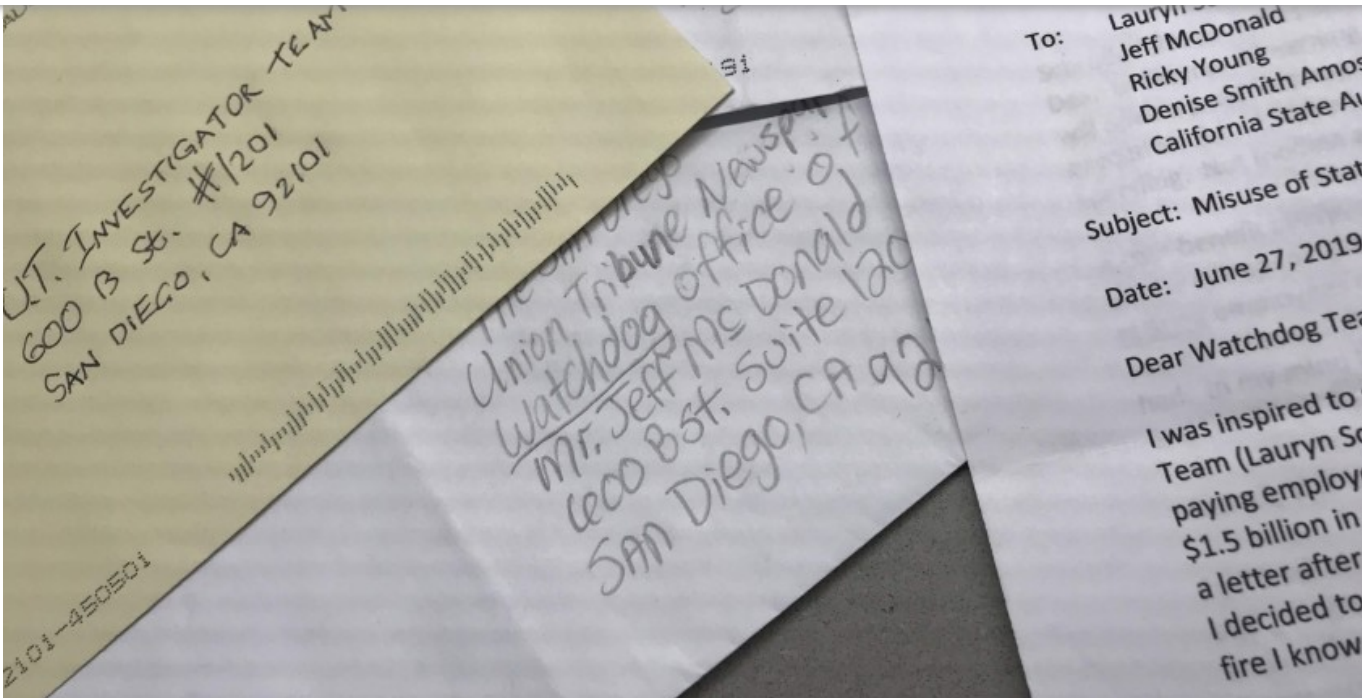 U.T. INVESTIGATOR TEAM
600 B St. #1201
SAN DIEGO, CA 92101
2101-450501
The San Diego
Union Tribune
Watchdog Office Of
Mr. Jeff McDonald
600 B St. Suite 120
SAN Diego, CA 92
To: Lauryn
Jeff McDonald
Ricky Young
Denise Smith Amos
California State
Subject: Misuse of Stat
Date: June 27, 2019
Dear Watchdog Tea
I was inspired to
Team (Lauryn Sc
paying employ
$1.5 billion in
a letter after
I decided to
fire I know